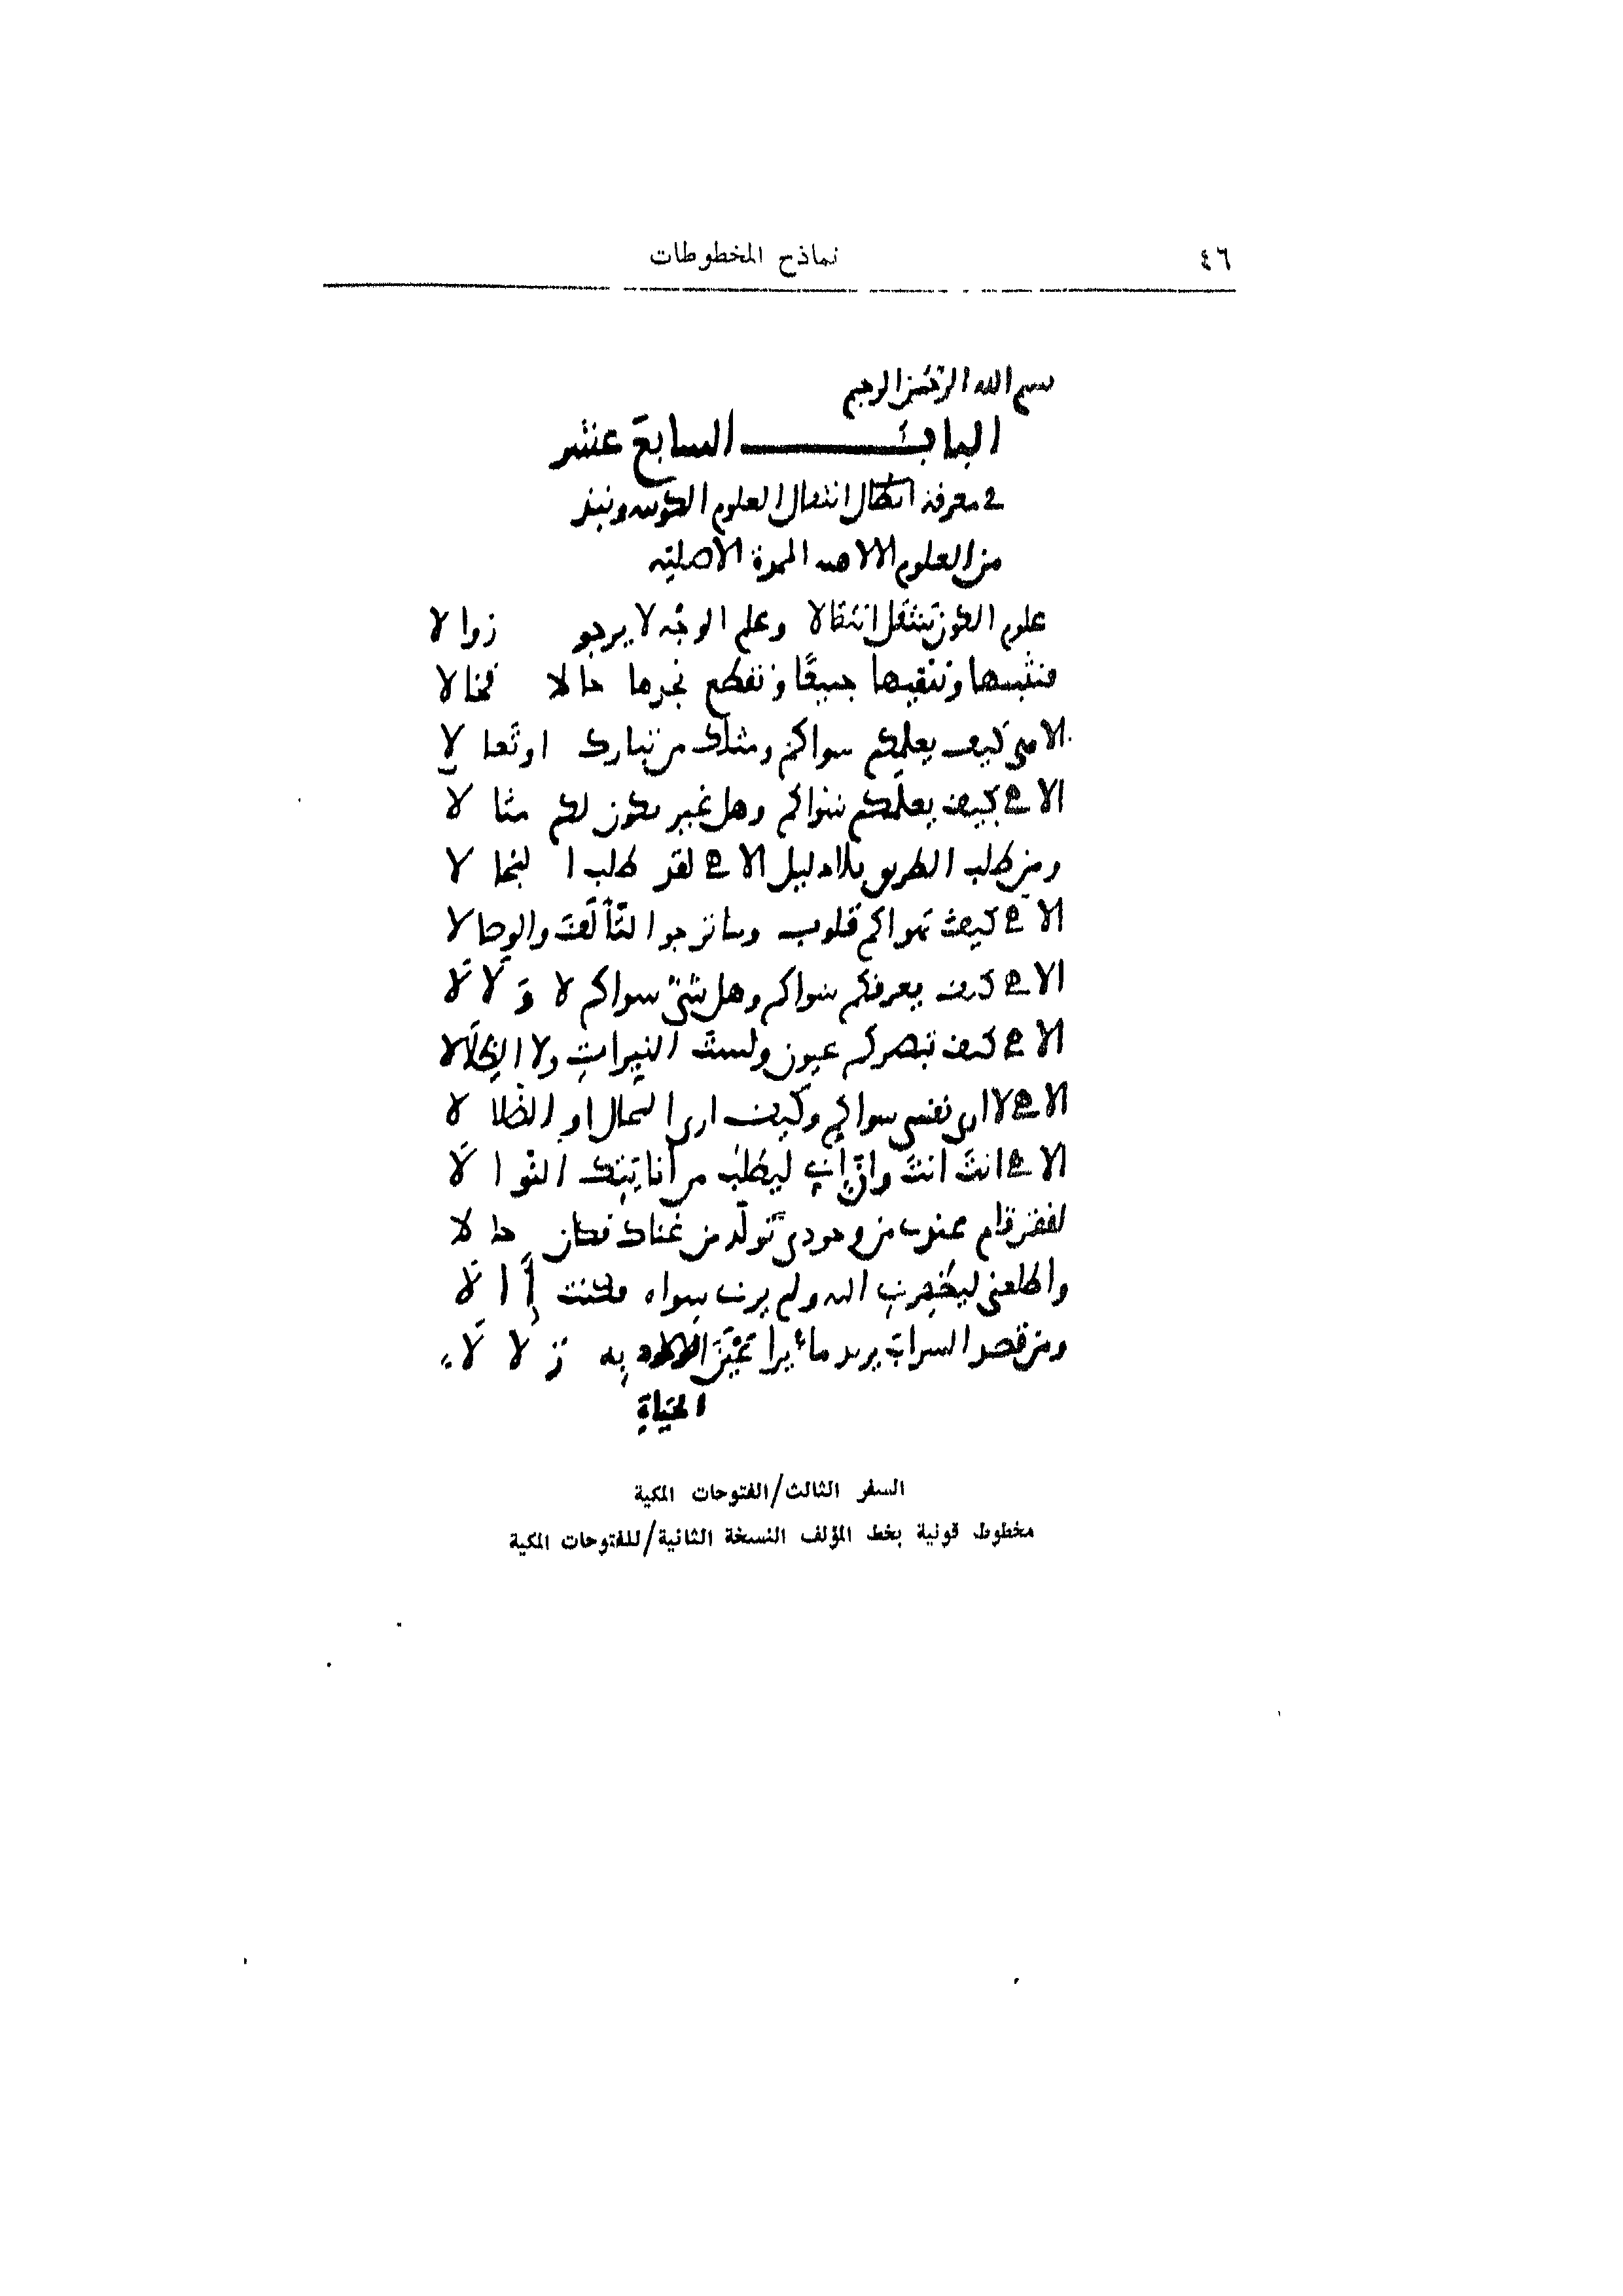 ٤٦
نماذج المخطوطات
بسم الله الرحمن الرحيم
الباب السابع عشر
في معرفة انتقال العلوم الكونيه ونبذ
من العلوم الالاهيه الممدة الاصلية
علوم الكون تنتقل انتقالا وعلم الوجه لا يرجو زوالا
فنثبتها وننفيها جميعًا ونقطع نجدها حالا فحالا
الاهي كيف يعلمكم سواكم ومثلك من تبارك او تعالا
الاهي كيف يعلمكم سواكم وهل غير يكون لكم مثالا
ومن طلب الطريق بلا دليل الاهي لقد طلب المحالا
الاهي كيف تهواكم قلوب وما ترجوا التألف والوصالا
الاهي كيف يعرفكم سواكم وهل شيء سواكم لا وَلالا
الاهي كيف تبصركم عيون ولست النيرات ولا الظلالا
الاهي لا ارى نفسي سواكم وكيف ارى المحال او الضلالا
الاهي انت انت وانّ اني ليطلب من أنايتك النوالا
لفقر قام عندي من وجودي تولّد من غناك فكان حالا
واطلعني ليظهرني اليه ولم يرني سواه فكنت أالا
ومن قصد السراب يريد ماء يرا عين به زلالا
الحياة
السفر الثالث/الفتوحات المكية
مخطوط قونية بخط المؤلف النسخة الثانية/للفتوحات المكية